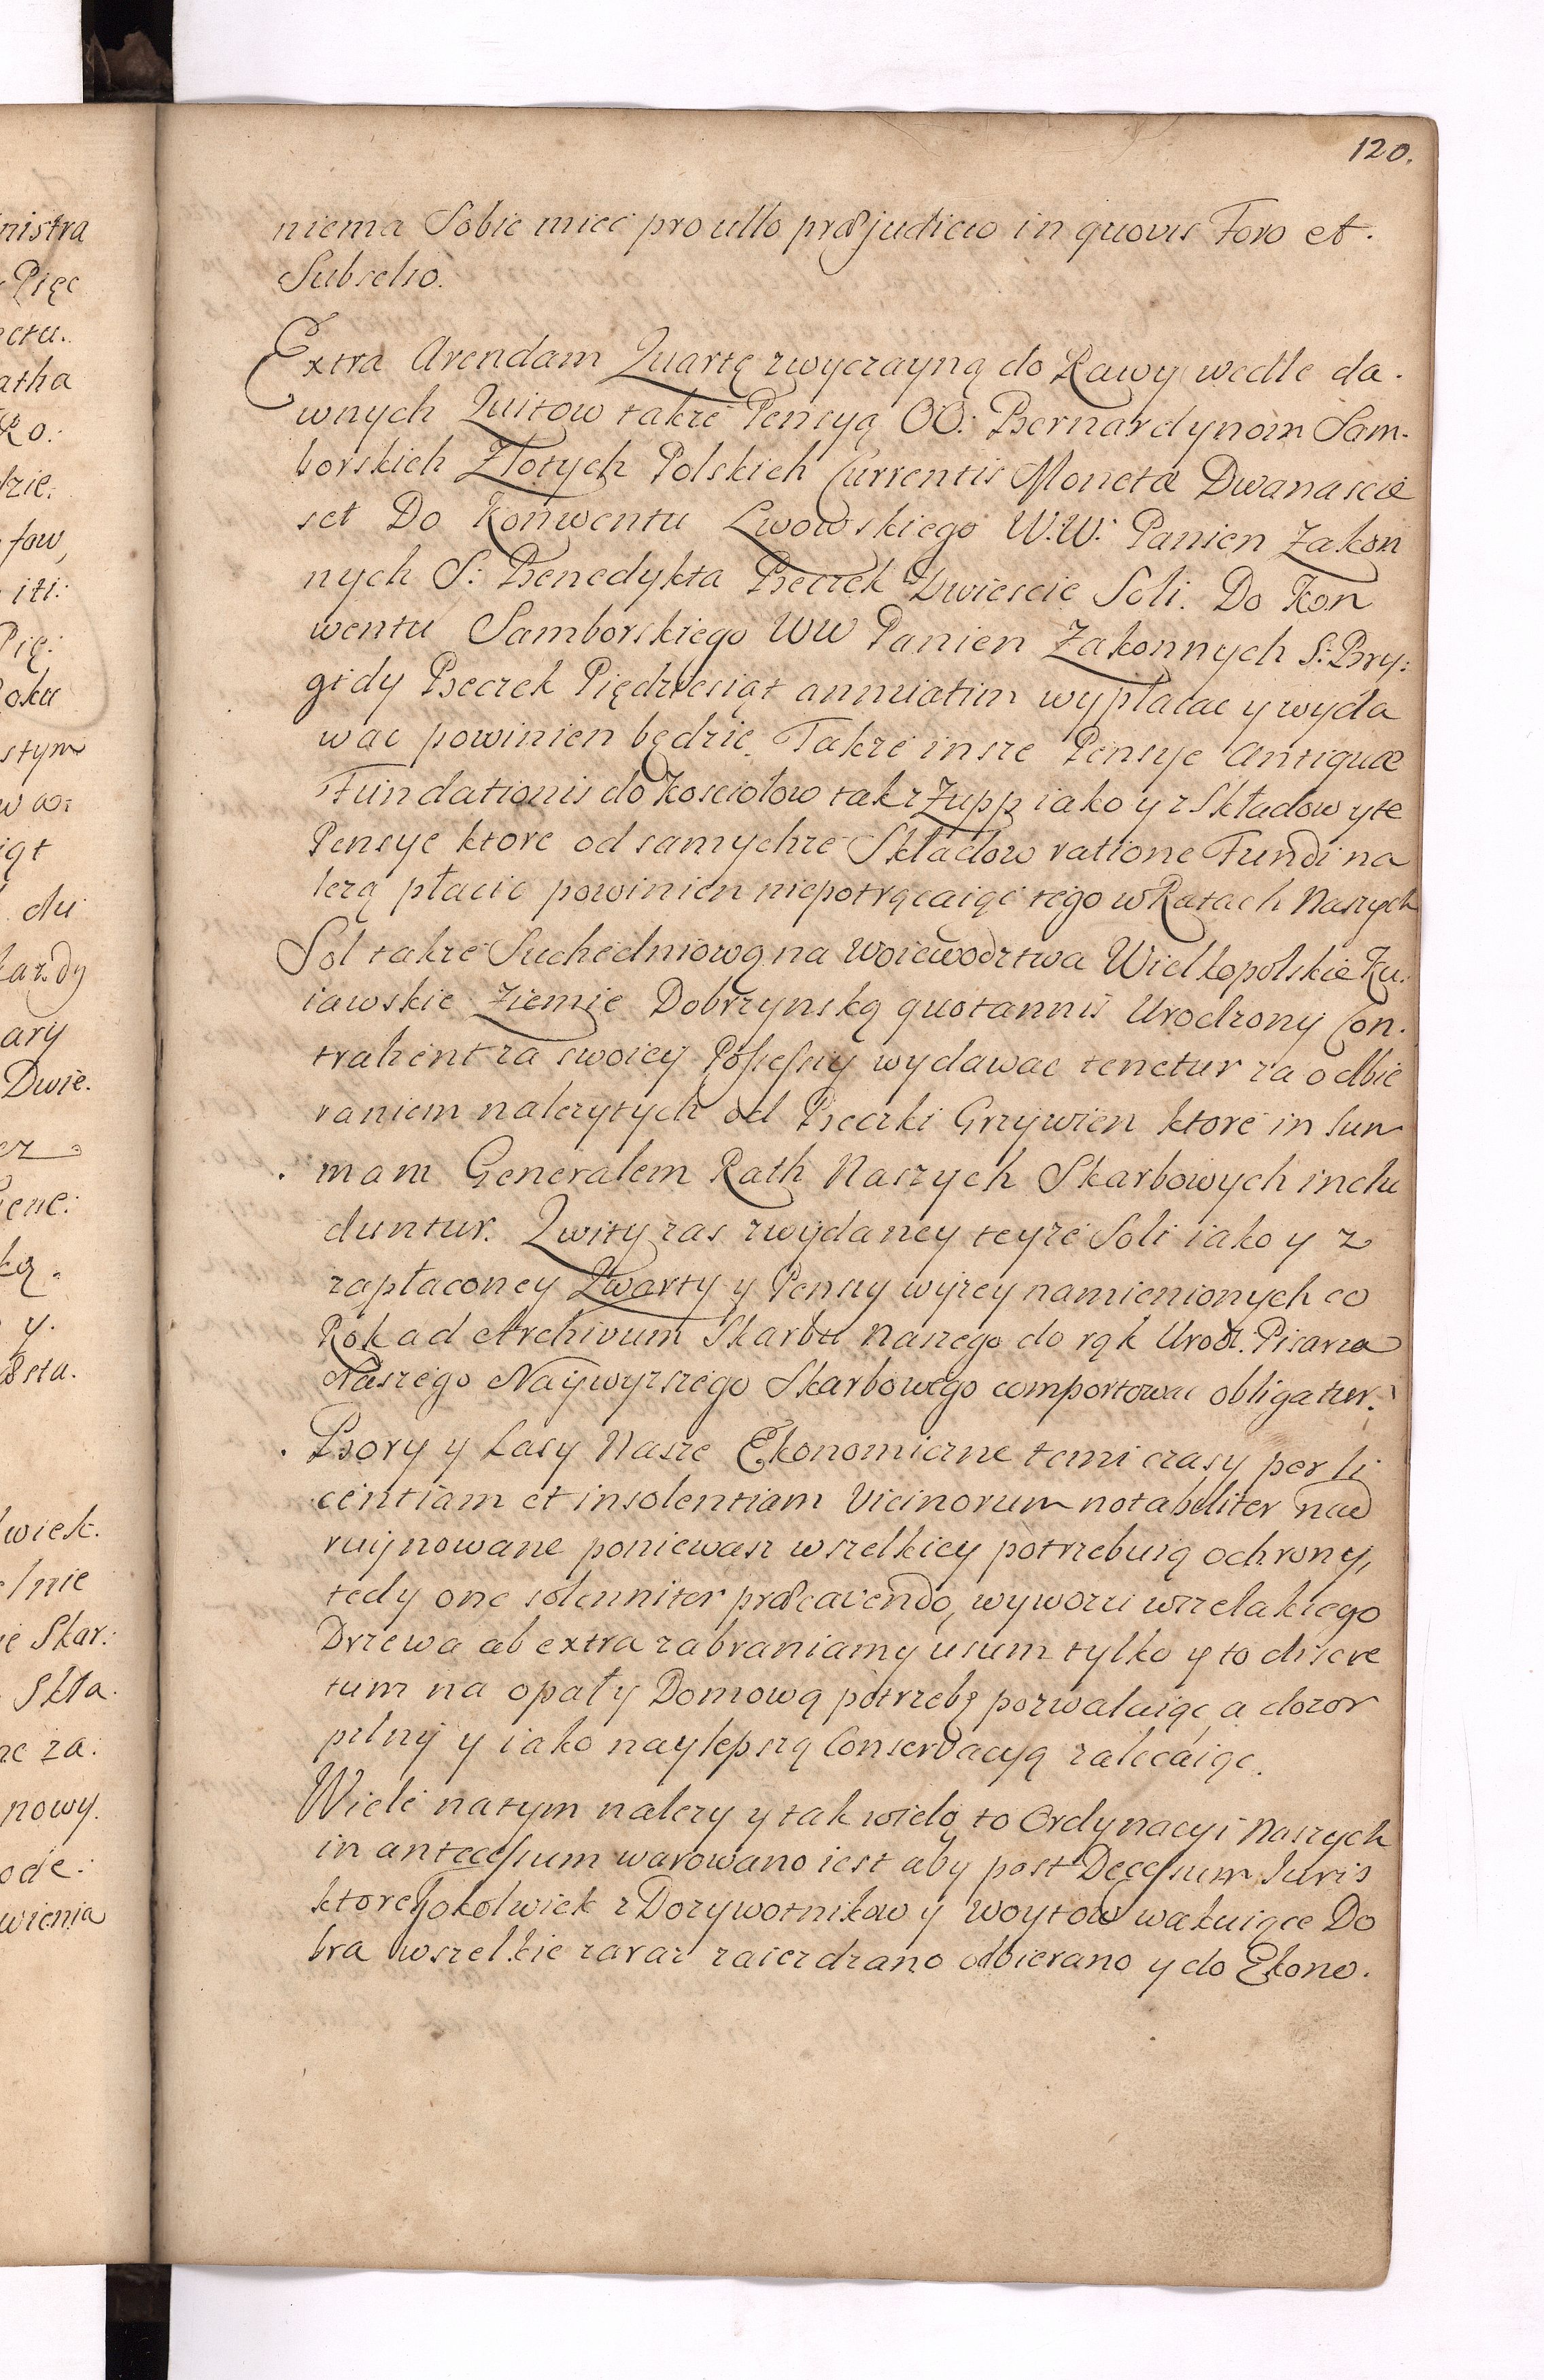 120.
niema Sobie mieć pro ullo præjudicio in quovis Foro et.
Subselio.
Extra Arendam Quartę zwyczayną do Rawy wedle da.
wnych Quitow także Pensyą OO: Bernardynom Sam.
borskich Złotych Polskich Currentis Monetæ Dwanascie
set Do Konwentu Lwowskiego W.W. Panien Zakon
nych S: Benedykta Beczek Dwiescie Soli. Do Kon
wentu Samborskiego WW Panien Zakonnych S: Bry:
gidy Beczek Piędziesiąt annuatim wypłacac y wyda
wac powinien będzie. Także insze Pensye Antiquæ
Fundationis do Kosciołow tak z Zupp iako y z Składow y te
Pensye ktore od samychze Składow ratione Fundi na
lezą płacic powinien niepotrącaiąc tego w Ratach Naszych
Sol także Suchedniową na Woiewodztwa Wielkopolskie Ku.
iawskie Ziemię Dobrzynską quotannis Urodzony Con.
trahent za swoiey Possessyi wydawac tenetur za odbie
raniem nalezytych od Beczki Grzywien ktore in Sum
mam Generalem Rath Naszych Skarbowych inclu
duntur. Qwity zas z wydaney teyze Soli iako y z
zapłaconey Qwarty y Pensyi wyzey namienionych co
Rok ad Archivum Skarbu Naszego do rąk Urod. Pisarza
Naszego Naywyzszego Skarbowego comportowac obligatur.
Bory y Lasy Nasze Ekonomiczne temi czasy per li
centiam et insolentiam Vicinorum notabiliter nad
ruynowane poniewasz wszelkiey potrzebuią ochrony,
tedy one solenniter præcavendo, wywozu wszelakiego
Drzewa ab extra zabraniamy usum tylko y to discre
tum na opał y Domową potrzebę pozwaluiąc, a dozor
pilny y iako naylepszą Conservacyą zalecaiąc.
Wiele natym nalezy y tak wielą to Ordynacyi Naszych
in antecessum warowano iest aby post Decessum Iuris
ktoregokolwiek z Dozywotnikow y Woytow wakuiące Do
bra wszelkie zaraz zaiezdzano odbierano y do Ekono.